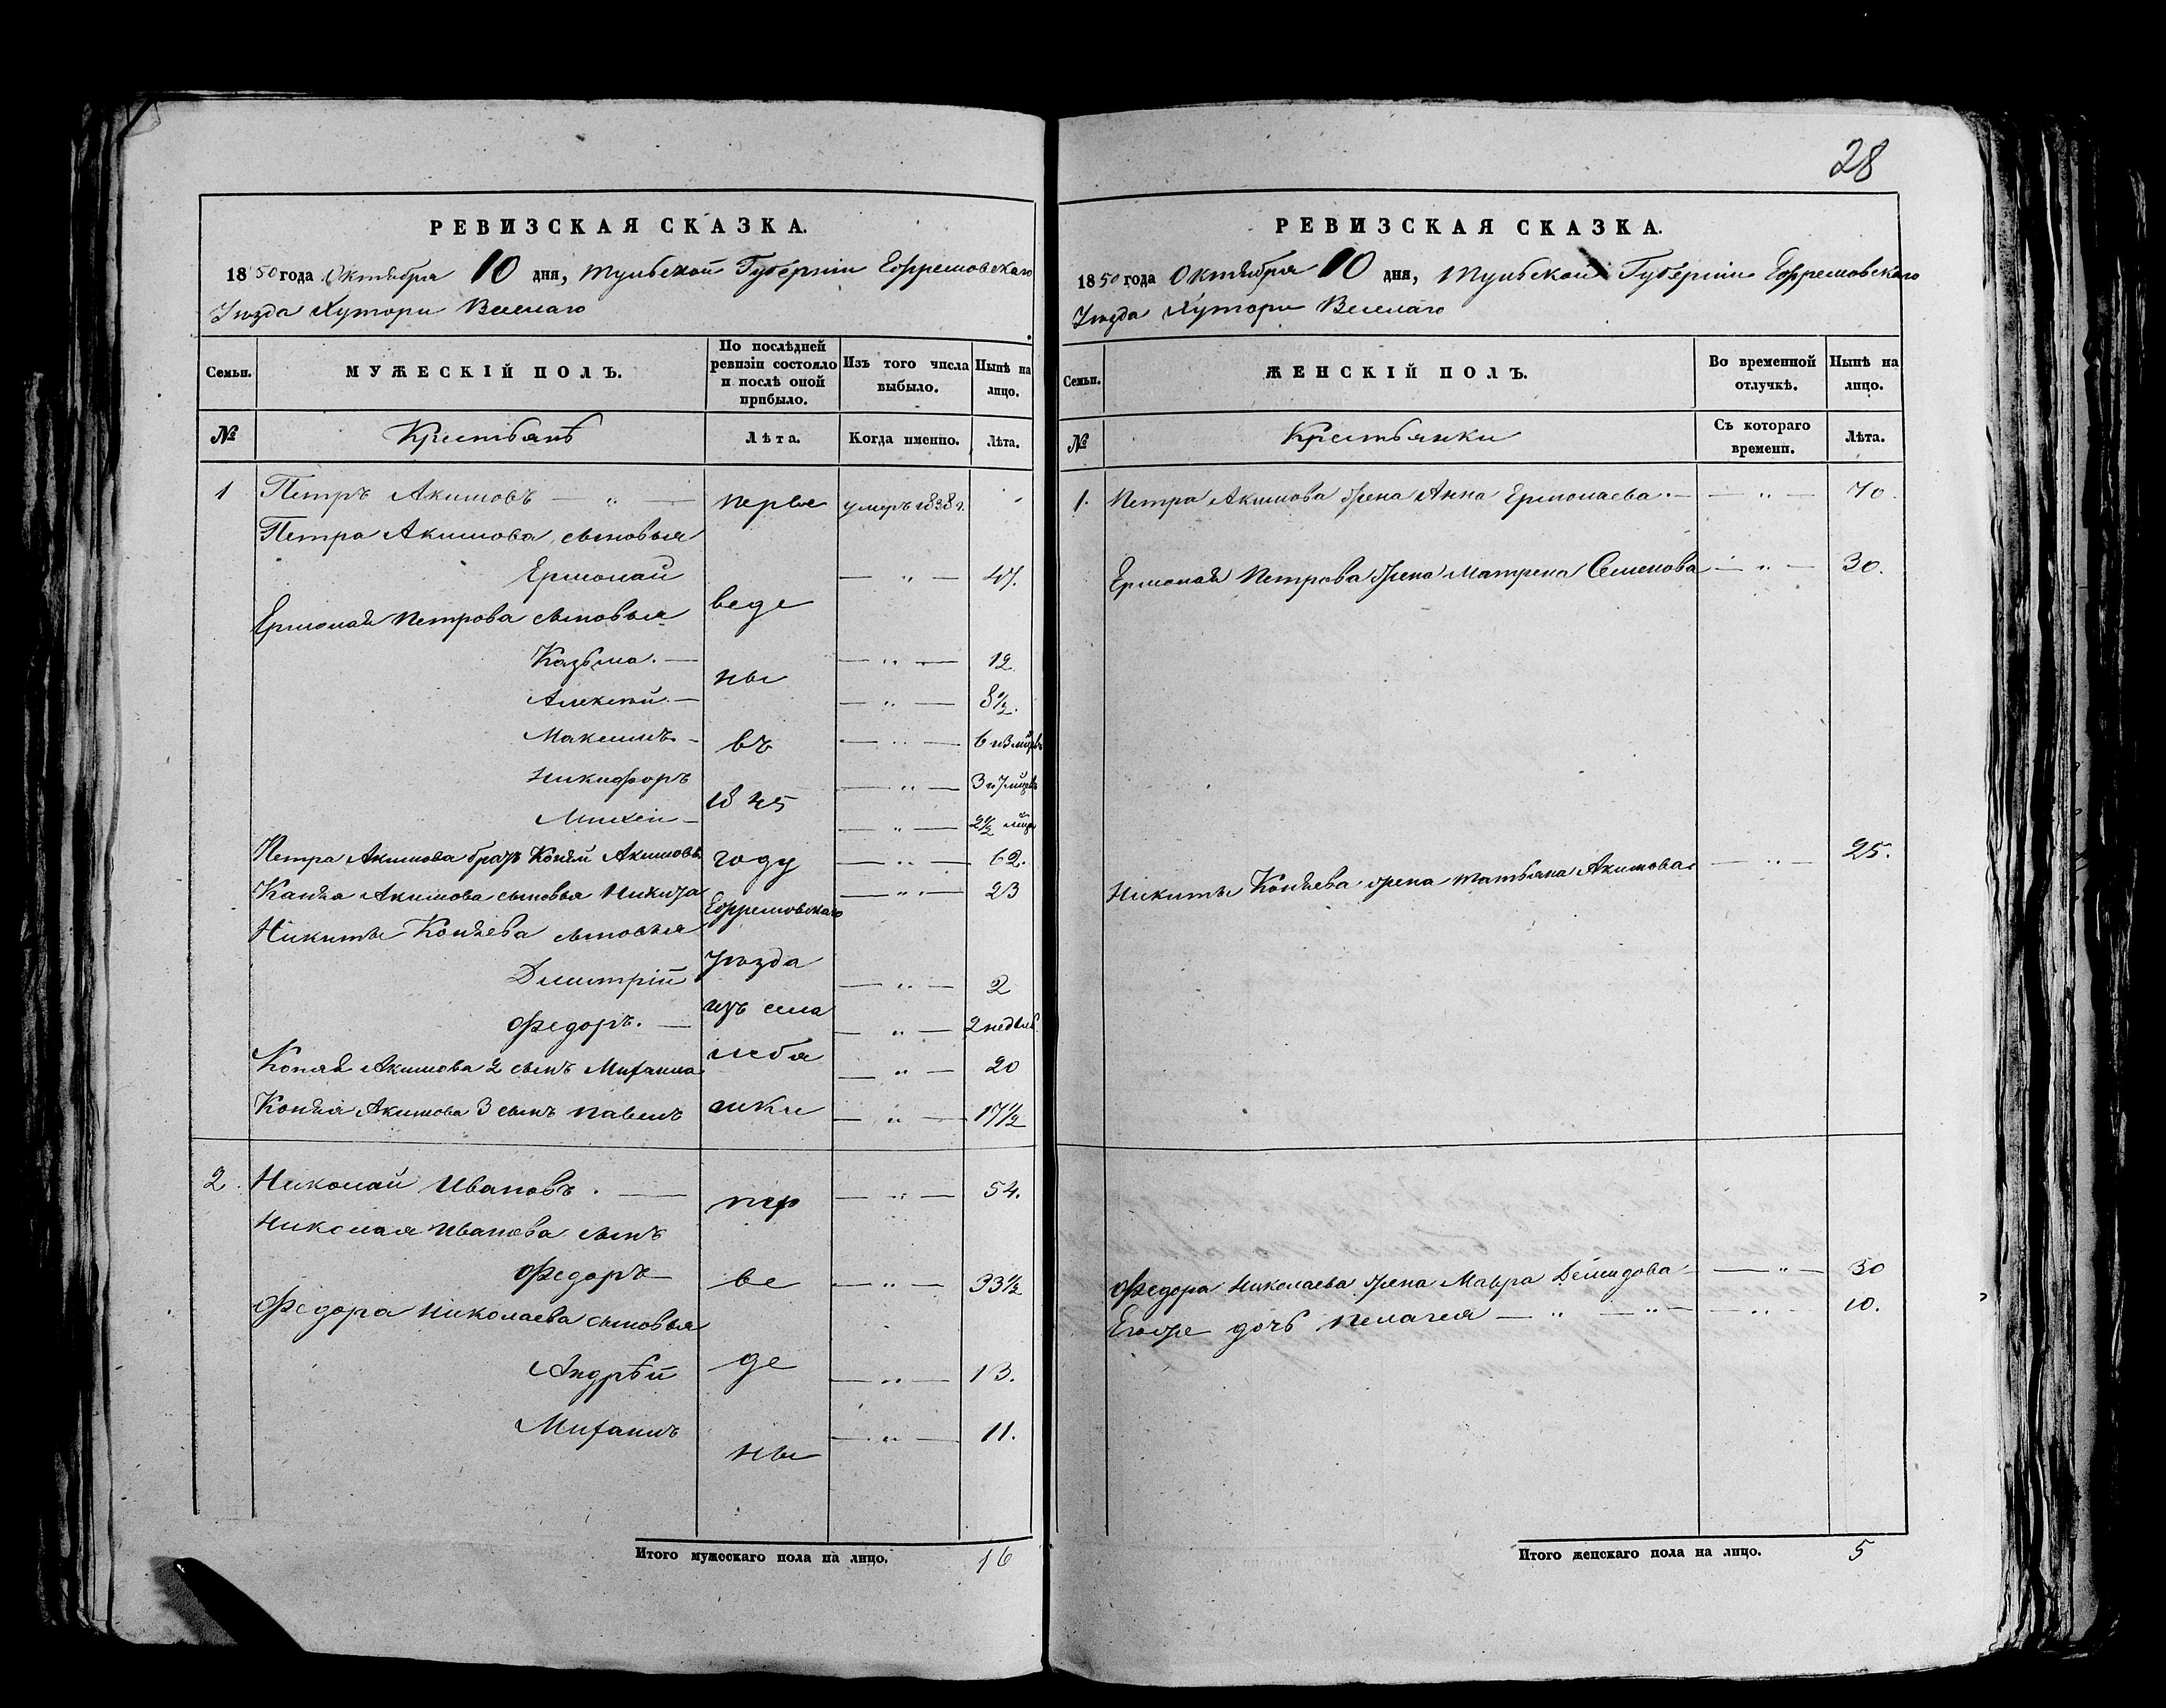 28
РЕВИЗСКАЯ СКАЗКА.
1850 года Октября 10 дня, Тульской Губерніи Ефремовскаго
Уѣзда Хутори Веселаго
Семьи.
МУЖЕСКІЙ ПОЛЪ.
По послѣдней ревизіи состояло и послѣ оной прибыло.
Изъ того числа выбыло.
Нынѣ на лицо.
№
Крестьянѣ
Лѣта.
Когда именно.
Лѣта.
1 Петръ Акимовъ — „ — перве умеръ 1838 г.
Петра Акимова сыновья
Ермолай — „ — 47.
Ермолая Петрова сыновья веде
Казьма. — — „ — 12
ны
Алексѣй. — — „ — 8 1/2.
Максимъ — въ — „ — 6 и 3 мцвъ
Никифоръ — „ — 3 и 7 мцвъ
1845
Михей — — „ — 2 1/2 мца
Петра Акимова братъ Конѣй Акимовъ году — „ — 62.
Канѣя Акимова сыновья Никита — „ — 23
Ефремовскаго
Никиты Конѣева сыновья
Уѣзда
Дмитрій — „ — 2
изъ села
Федоръ. — — „ — 2 недѣль
лебя
Конѣя Акимова 2 сынъ Михаила — „ — 20
Конѣя Акимова 3 сынъ Павелъ шки — „ — 17 1/2
2. Николай Ивановъ. — пер — „ — 54.
Николая Иванова сынъ
Федоръ — ве — „ — 33 1/2
Федора Николаева сыновья
де
Андрѣй — „ — 13.
Михаилъ — „ — 11.
ны
Итого мужескаго пола на лицо. 16
РЕВИЗСКАЯ СКАЗКА.
1850 года Октября 10 дня, Тульской Губерніи Ефремовскаго
Уѣзда Хутори Веселаго
Семьи.
ЖЕНСКІЙ ПОЛЪ.
Во временной отлучкѣ.
Нынѣ на лицо.
№
Крестьянки
Съ котораго времени.
Лѣта.
1. Петра Акимова жена Анна Ермолаева. — — „ — 70.
Ермолая Петрова жена Матрена Семенова — „ — 30.
Никиты Конѣева жена Татьяна Акимова — „ — 25.
Федора Николаева жена Мавра Демидова — — „ — 30
Егоже дочь Пелагея — „ — „ — — „ — 10.
Итого женскаго пола на лицо. 5